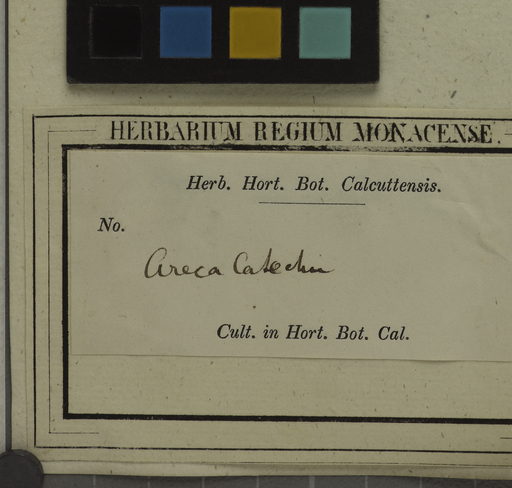 HERBARIUM REGIUM MONACENSE.
Herb. Hort. Bot. Calcuttensis.
No.
Areca Catechu
Cult. in Hort. Bot. Cal.